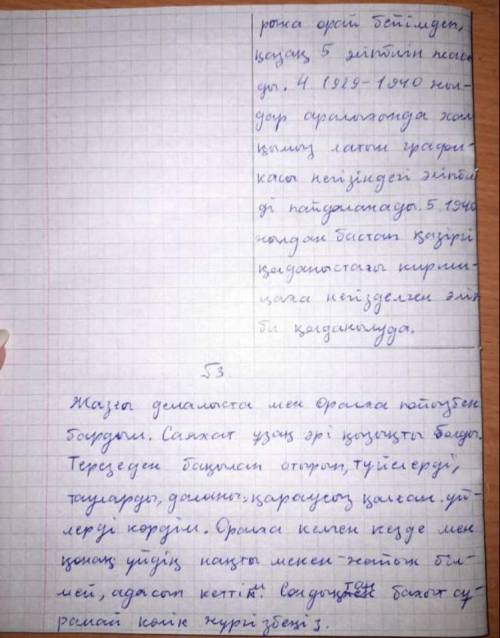 рына орай бейімдеп,
қазақ 5 әліпбиін жаса
ды. 4. 1929-1940 жыл-
дар аралығында хал
қымыз латын графи-
касы негізіндегі әліпби
ді пайдаланады. 5. 1940
жылдан бастап қазіргі
қолданыстағы кирил-
цаға негізделген әліп
би қолданылуда.
№3
Жазғы демалыста мен Оралға пойызбен
бардым. Саяхат ұзақ әрі қызықты болды.
Терезеден бақылап отырып, түйелерді,
тауларды, даланы, қараусыз қалған үй-
лерді көрдім. Оралға келген кезде мен
қонақ үйдің нақты мекен-жайын біл-
мей, адасып кеттім. Сондықтан бағыт сұ-
рамай көлік жүргізбеңіз.